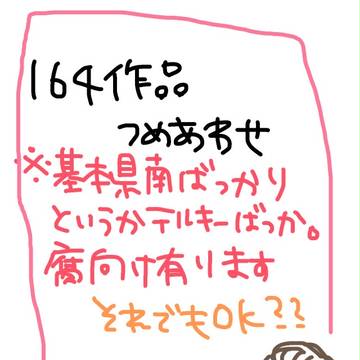 164作品
つめあわせ
※基本県南ばっかり
というかテルキーばっか。
腐向け有ります
それでもOK??